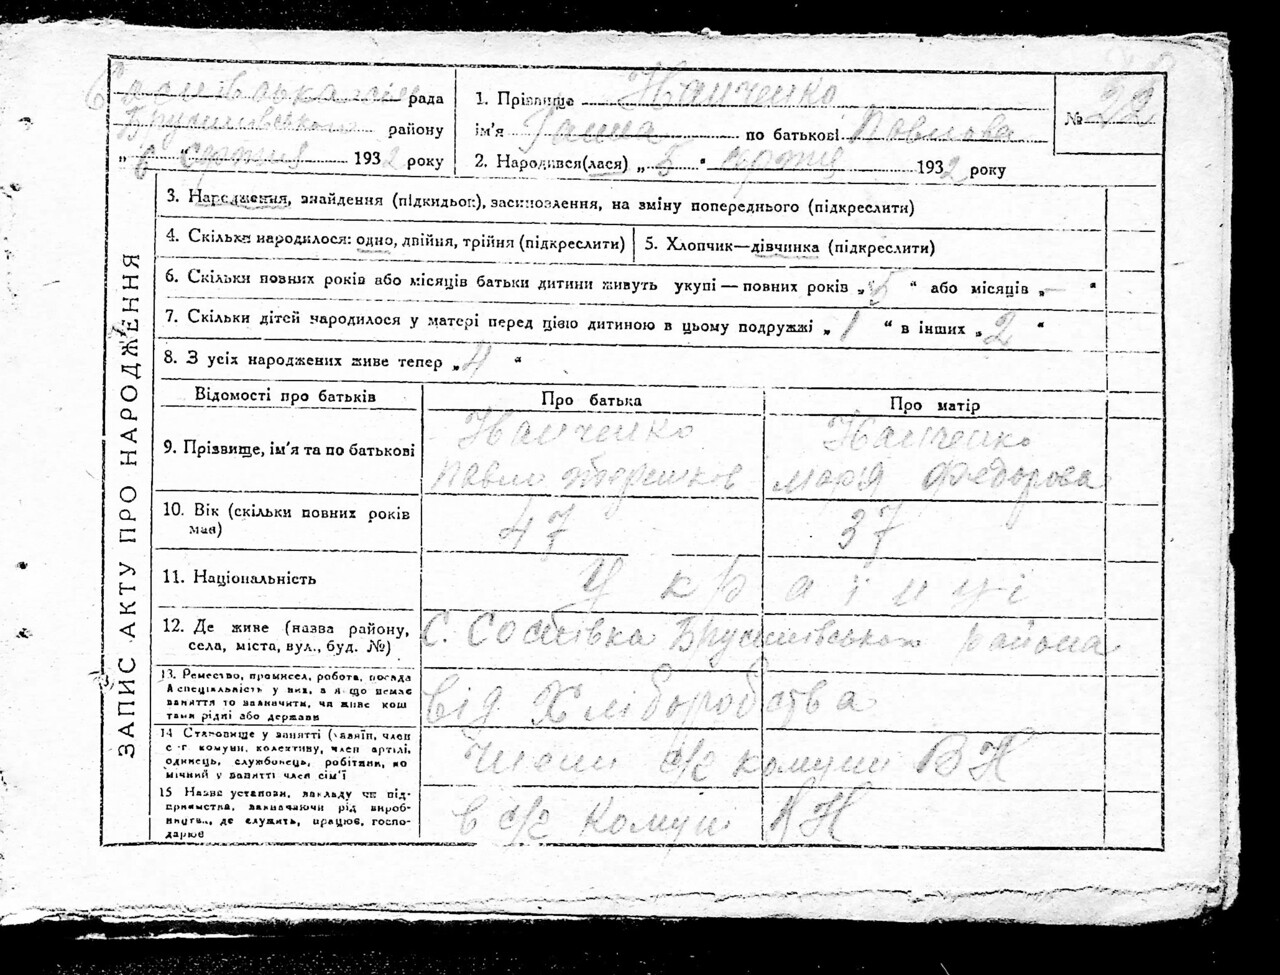 Соснівська сіль рада
Брусилівського району
„6 серпня 1932 року
1. Прізвище Иваниченко
ім'я Ганна по батькові Павлова
2. Народився(лася) „5" серпня 1932 року
№ 22
ЗАПИС АКТУ ПРО НАРОДЖЕННЯ
3. Народження, знайдення (підкидьок), засиновлення, на зміну попереднього (підкреслити)
4. Скільки народилося: одно, двійня, трійня (підкреслити)
5. Хлопчик—дівчинка (підкреслити)
6. Скільки повних років або місяців батьки дитини живуть укупі — повних років „5" або місяців „—"
7. Скільки дітей народилося у матері перед цією дитиною в цьому подружжі „1" в інших „2"
8. З усіх народжених живе тепер „4"
Відомості про батьків
Про батька
Про матір
9. Прізвище, ім'я та по батькові
Павло
Марія Федорова
10. Вік (скільки повних років має)
47
37
11. Національність
Українці
12. Де живе (назва району,
села, міста, вул., буд. №)
С. Соснівка Брусилівського района
13. Ремество, промисел, робота, посада
А спеціяльність у них, а якщо немає
заняття то зазначити, чи живе кош
тами рідні або держави
від Хліборобства
14 Становище у занятті (хазяїн, член
с-г комуни, колективу, член артілі,
одинець, службовець, робітник, по
мічний у занятті член сім'ї
член с/г комуни ВН
15 Назва установи, закладу чи під-
приємства, зазначаючи рід вироб-
ництва, де служить, працює, госпо-
дарює
в с/г Комун